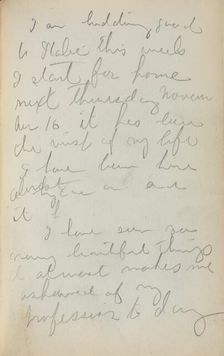 I am bidding good
to Italie this week
I start for home
next thursday Novem
ber 16 it has been
the visit of my life
I have been here
a year
it
I have seen so
many beautiful things
it almost makes me
ashamed of my
profession to day